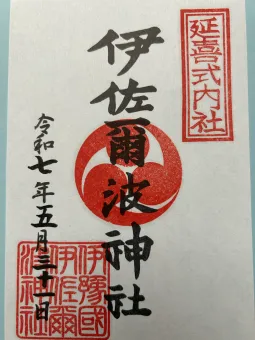 延喜式内社
伊佐爾波神社
令和七年五月三十一日
伊豫國
伊佐爾
波神社